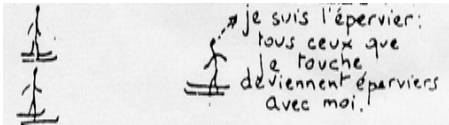 je suis l'épervier:
tous ceux que
je touche
deviennent éperviers
avec moi.